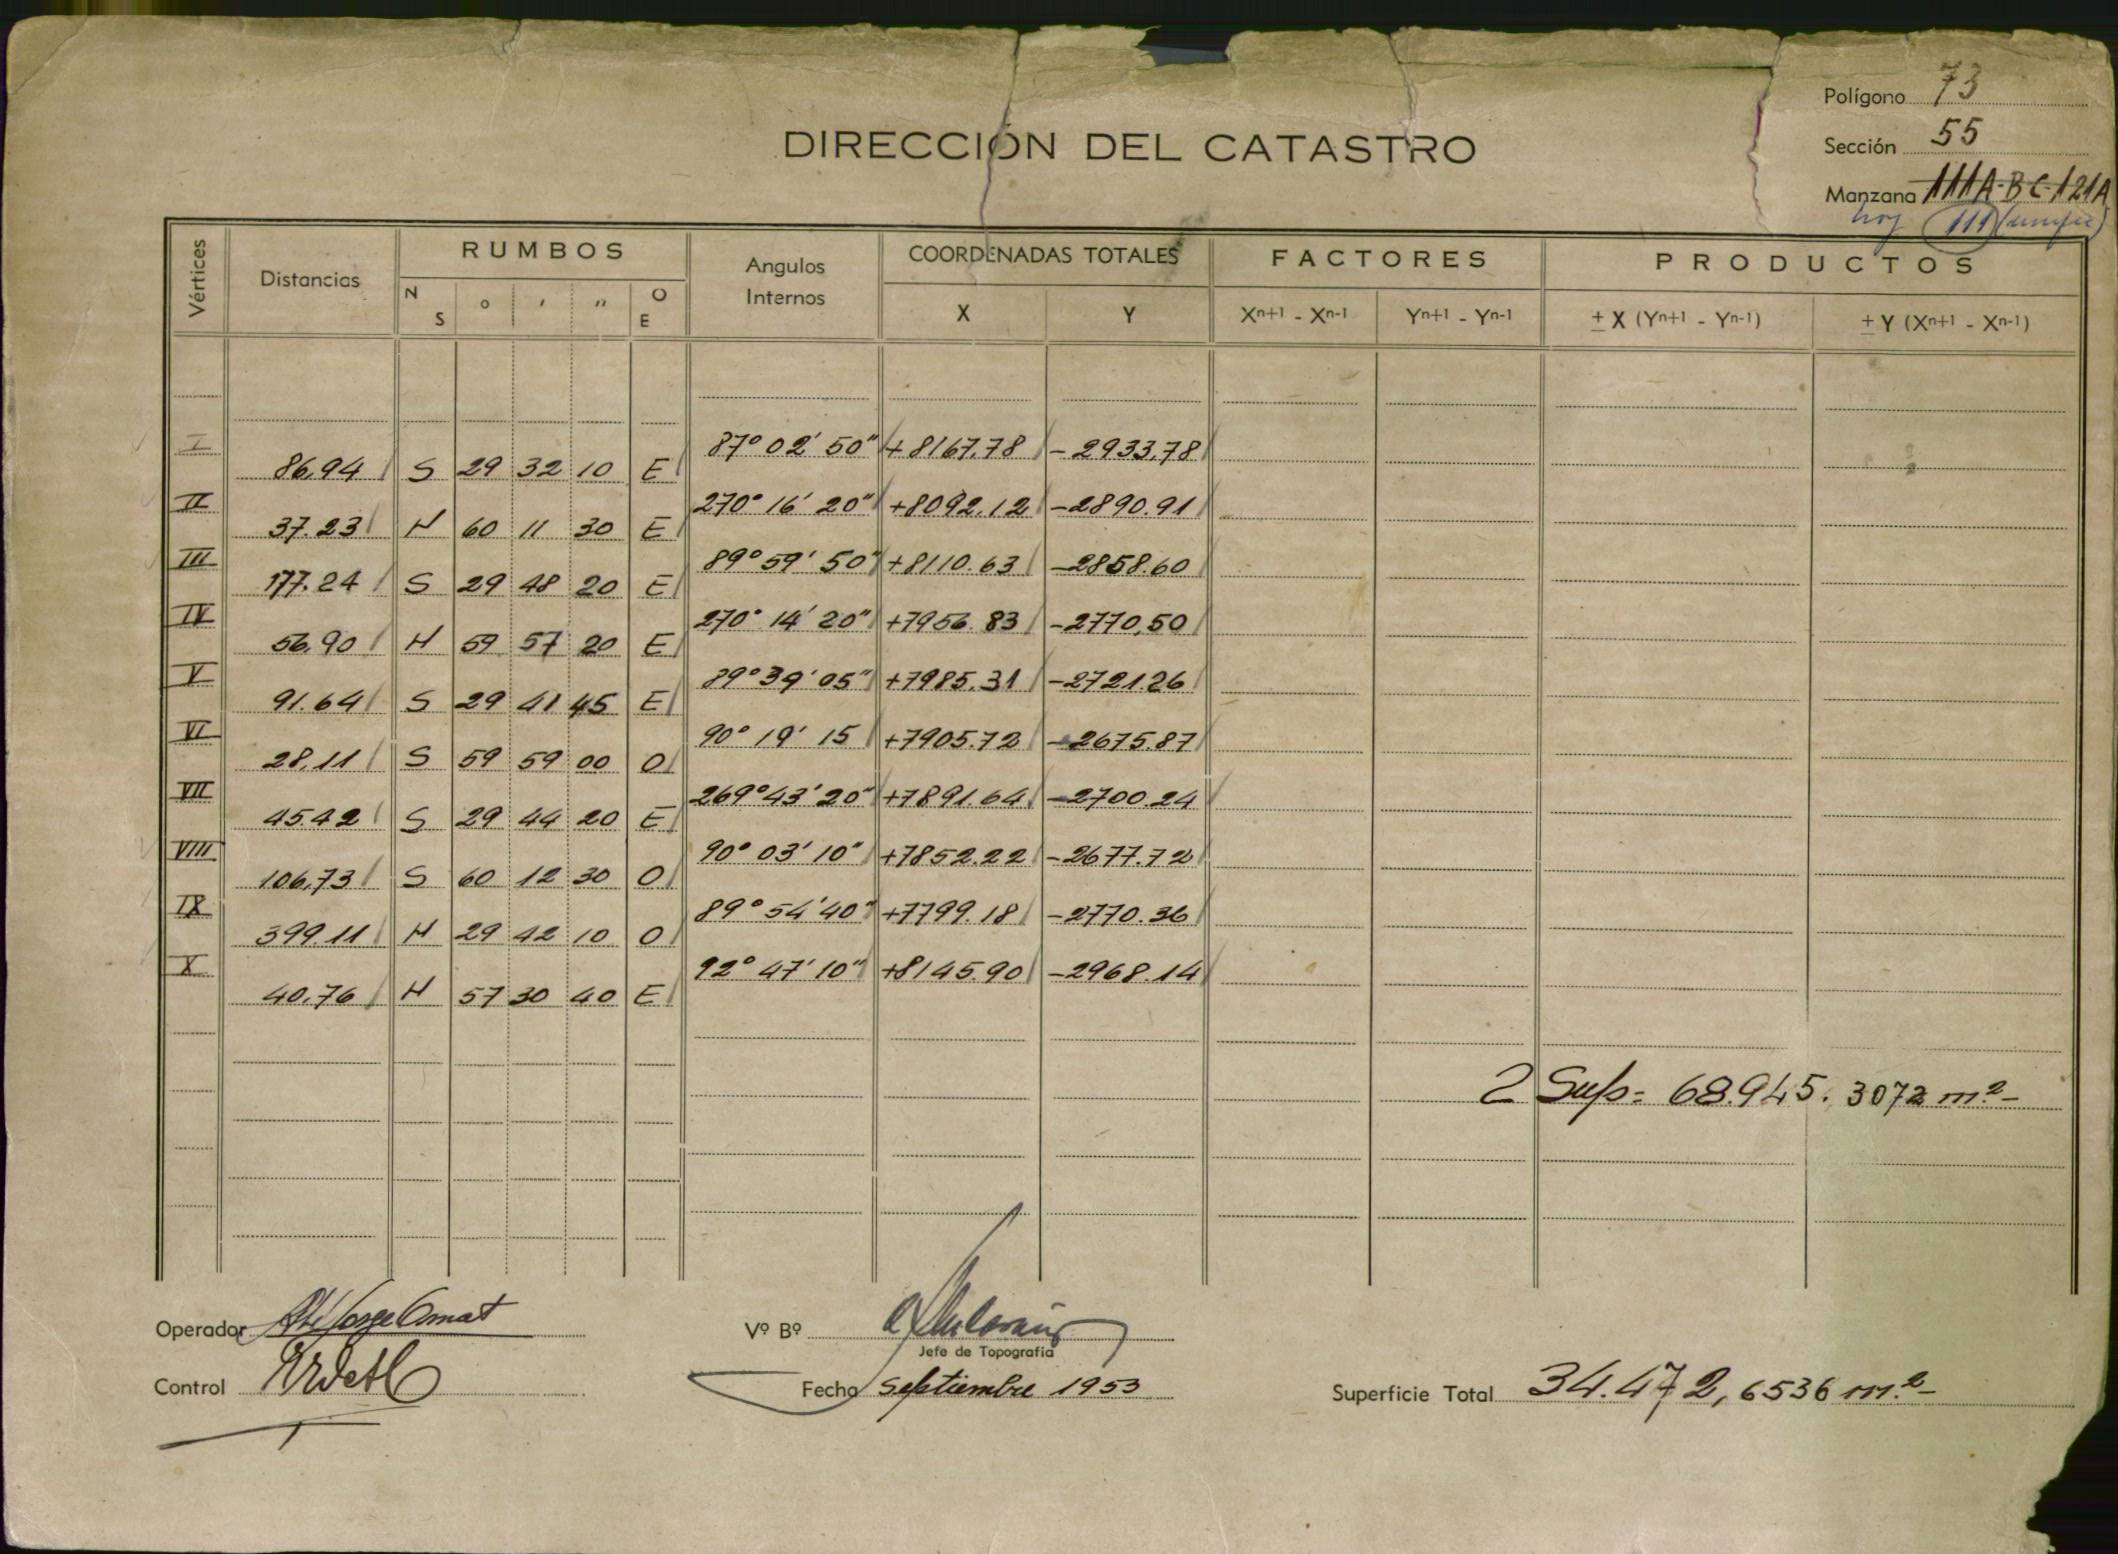 Polígono 73
DIRECCIÓN DEL CATASTRO
Sección 55
Manzana 111A-BC-121A
hoy 111
Vértices Distancias RUMBOS Angulos Internos COORDENADAS TOTALES FACTORES PRODUCTOS
N S o ' " O E X Y Xn+1 - Xn-1 Yn+1 - Yn-1 ± X (Yn+1 - Yn-1) ± Y (Xn+1 - Xn-1)
I 87° 02' 50" +8167,78 -2933,78
86,94 S 29 32 10 E
II 270° 16' 20" +8092,12 -2890.91
37.23 N 60 11 30 E
III 89° 59' 50" +8110.63 -2858.60
177.24 S 29 48 20 E
IV 270° 14' 20" +7956.83 -2770,50
56,90 N 59 57 20 E
V 89° 39' 05" +7985.31 -2721.26
91.64 S 29 41 45 E
VI 90° 19' 15 +7905.72 -2675.87
28,11 S 59 59 00 O
VII 269° 43' 20" +7891.64 -2700.24
45.42 S 29 44 20 E
VIII 90° 03' 10" +7852.22 -2677.72
106,73 S 60 12 30 O
IX 89° 54' 40" +7799.18 -2770.36
399.11 N 29 42 10 O
X 92° 47' 10" +8145.90 -2968.14
40,76 N 57 30 40 E
2 Sup= 68.945.3072 m.2-
Operador Jorge Amat Vº Bº
Jefe de Topografía
Control Fecha septiembre 1953 Superficie Total 34.472,6536 m.2-